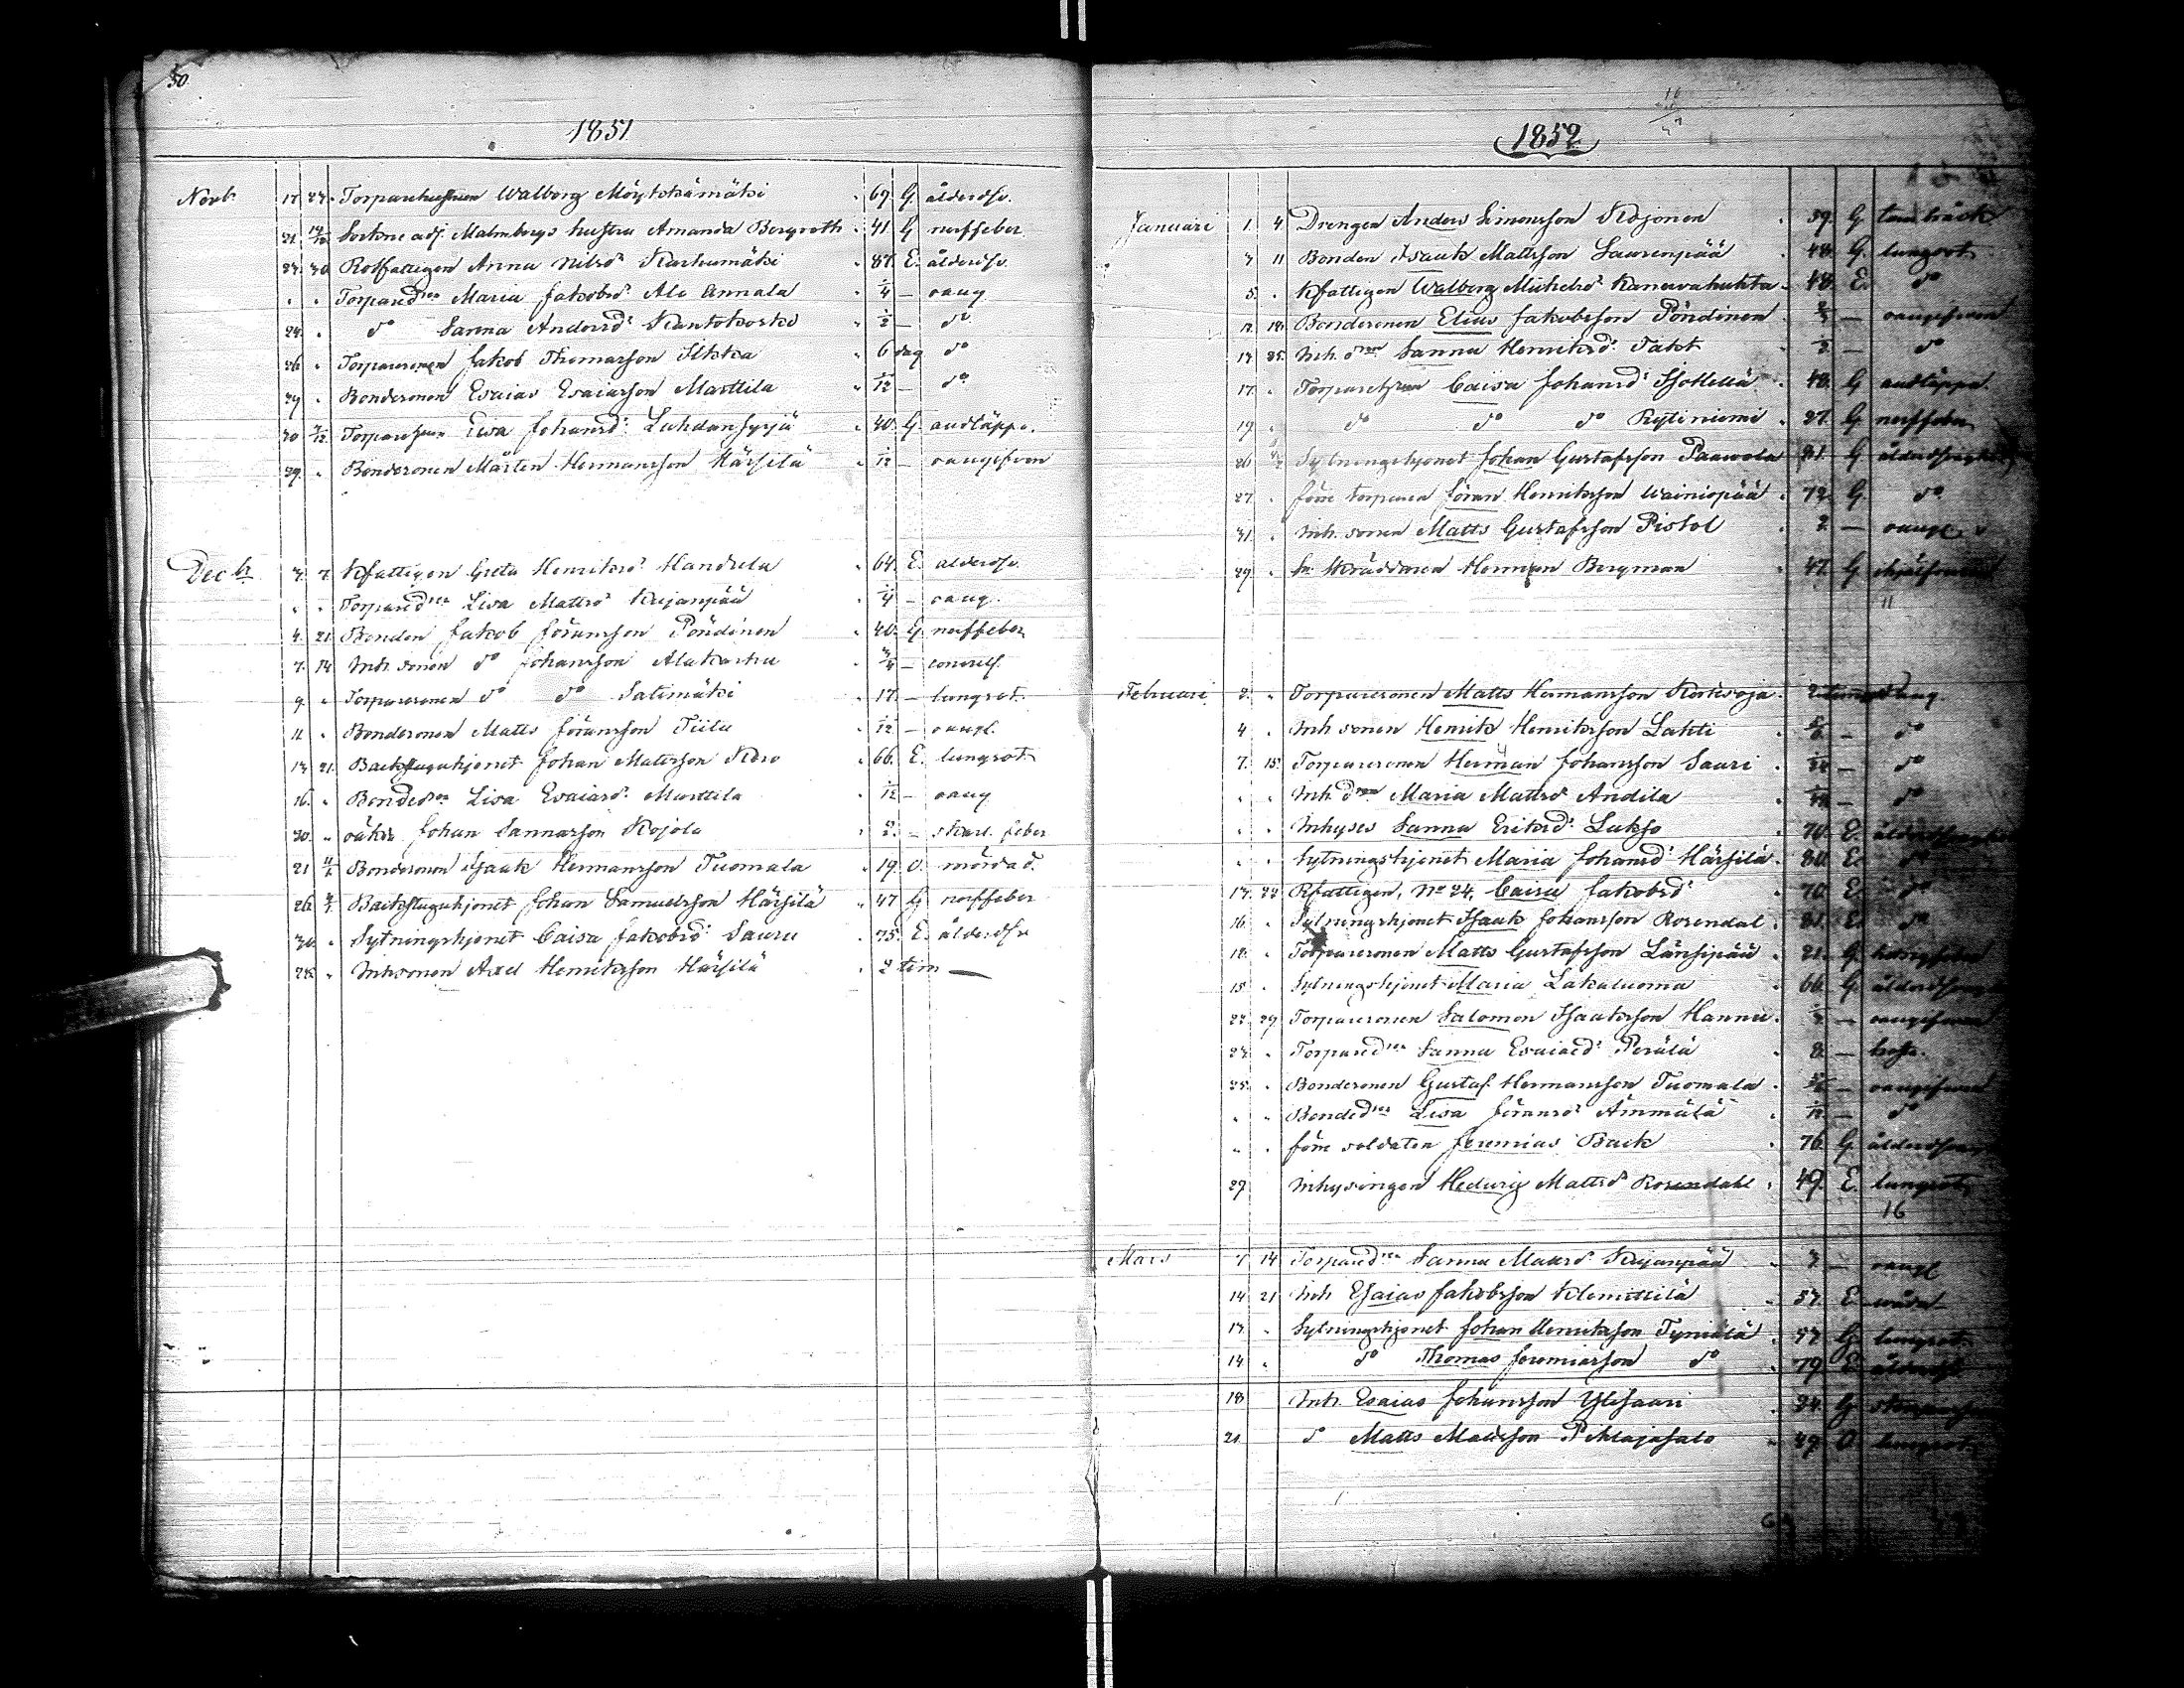 50
1851
Novb. 17 23. Torparehustrun Walborg Möykkämäki 69 G ålderdsv.
21 14/12 Sockne adj. Malmbergs hustru Amanda Bergroth 41 G nerffeber
23. 30 Rotfattigen Anna Nilsd: Karhumäki 87. E. ålderdsv.
" " Torpared:n Maria Jakobsd: Ala Annala 1/4 — oang
24. " do Sanna Andersd: Kantokoski 1/2 — do
26 " Torparesonen Jakob Thomasson Ilkka 6 dag do
" Bondesonen Esaias Esaiasson Marttila /12 — do
30 /12 Torpareh Ewa Johansd: Luhdansyrjä 40. G. andtäppa.
29. " Bondesonen Mårten Hermansson Härsilä /12 — oangifven
Decb. 3. 7. Rfattigen Greta Henriksd: Mandela 64. E. alderdsv.
" " Torpared:n Lisa Mattsd: Kujanpää /4 — oang.
4. 21 Bonden Jakob Jöransson Pöndinen 40. G. nerffeber
7. 14 Inh sonen do Johansson Alakarhu 3/4 — convuls.
9. " Torparesonen do do Salimäki 17. — lungsot.
11 " Bondesonen Matts Jöransson Tiila /12 — oangf.
13 21 Backstuguhjonet Johan Mattsson Koro 66. E. lungsot
16. " Bonded:n Lisa Esaiasd: Marttila /12 — oang
20. " oäkta Johan Sannasson Kojola 2. — skarl. feber
21 Bondesonen Isaak Hermansson Tuomala 19. O. mördad.
26. Backstuguhjonet Johan Samuelsson Härsilä 47 G nerffeber
30. " Sytningshjonet Caisa Jakobsd: Sauru 75. E. ålderdsv
28. " Inhsonen Axel Henriksson Härsilä 2 tim —
1852
Januari 1. 4. Drengen Anders Simonsson Kojonen 59. G
3 11 Bonden Isaak Mattsson Saurenpää 48. G. lungsot
5. " Rfattigen Walborg Michelsd: Kanervahuhta 48. E. do
18. Bondesonen Elias Jakobsson Pöndinen — oangifven
13 25. Inh. d:n Sanna Henriksd: Takt — do
17. " Torpareh Caisa Johansd: 48. G andtäppa.
19 " do do do Rytiniemi 27. G nerffeber
26 Sytningshjonet Johan Gustafsson Paavola 81. G
27 " före torparen Jöran Henriksson Wainiopää 72. G. do
31. " Inh. sonen Matts Gustafsson Pistol 2. — oangf.
29. " Sn Skräddaren Herman Bergman 47. G
11
Februari 2. " Torparesonen Matts Hermansson Koskioja
4 " Inh sonen Henrik Henriksson Lahti — do
7. 15. Torparesonen Herman Johansson Sauri — do
" " Inh. d:n Maria Mattsd: Andila — do
" " Inhyses Sanna Eriksd: Lukso 70. E.
" " Sytningshjonet Maria Johansd: Härsilä 80. E. do
13. 22 Rfattigen, No 24, Caisa Jakobsd: 70. E. do
16. " Sytningshjonet Isaak Johansson Rosendal 81. E. do
18. " Torparesonen Matts Gustafsson Länsipää 21. G.
15 " Sytningshjonet Maria Lakaluoma 66. G.
22. 29 Torparesonen Salomon Isaaksson Hannu — oangifven
23. " Torpared:n Sanna Esaiasd: Perälä 8. —
25. " Bondesonen Gustaf Hermansson Tuomala — oangifven
" " Bonded:n Lisa Jöransd: Ämmälä — do
" " före soldaten Jeremias Back 76. G
29. Inhysingen Hedwig Mattsd: Rosendahl 49. E. lungsot
16
Mars 14 Torpared:n Sanna Mattsd: Kujanpää — oangf
14 21 Inh Esaias Jakobsson Klemittilä 57 E
13. " Sytningshjonet Johan Henriksson Tyniälä G lungsot
14 " do Thomas Jeremiasson do 79 E
18 Inh. Esaias Johansson Ylisaari G
21 do Matts Mattsson Pihlajasalo O lungsot